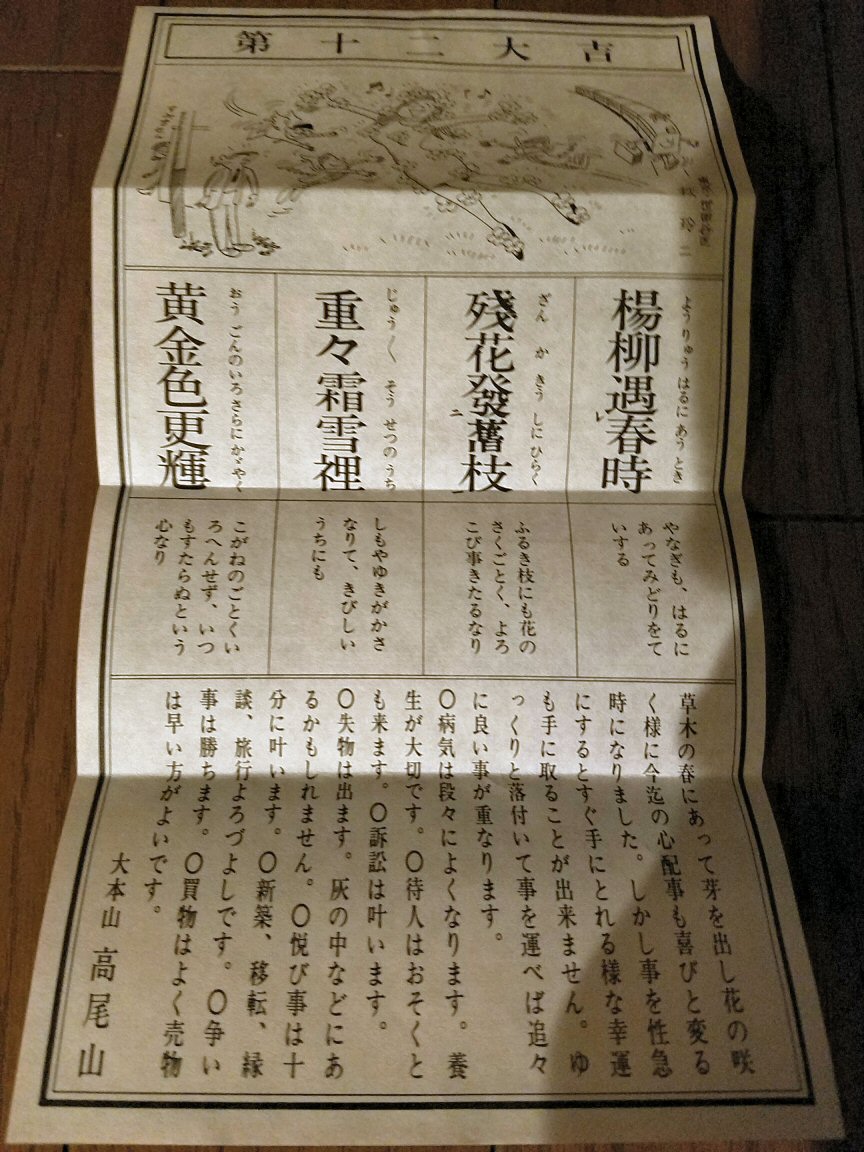 第十二大吉
牧玲二
楊柳遇春時
ようりゅうはるにあうとき
レ
やなぎも、はるに
あってみどりをて
いする
殘花發舊枝
ざんかきうしにひらく
二
一
ふるき枝にも花の
さくごとく、よろ
こび事きたるなり
重々霜雪裡
じゅう〳〵そうせつのうち
しもやゆきがかさ
なりて、きびしい
うちにも
黄金色更輝
おうごんのいろさらにかゞやく
こがねのごとくい
ろへんせず、いつ
もすたらぬという
心なり
草木の春にあって芽を出し花の咲
く様に今迄の心配事も喜びと変る
時になりました。しかし事を性急
にするとすぐ手にとれる様な幸運
も手に取ることが出来ません。ゆ
っくりと落付いて事を運べば追々
に良い事が重なります。
〇病気は段々によくなります。養
生が大切です。〇待人はおそくと
も来ます。〇訴訟は叶います。
〇失物は出ます。灰の中などにあ
るかもしれません。〇悦び事は十
分に叶います。〇新築、移転、縁
談、旅行よろづよしです。〇争い
事は勝ちます。〇買物はよく売物
は早い方がよいです。
大本山 高尾山